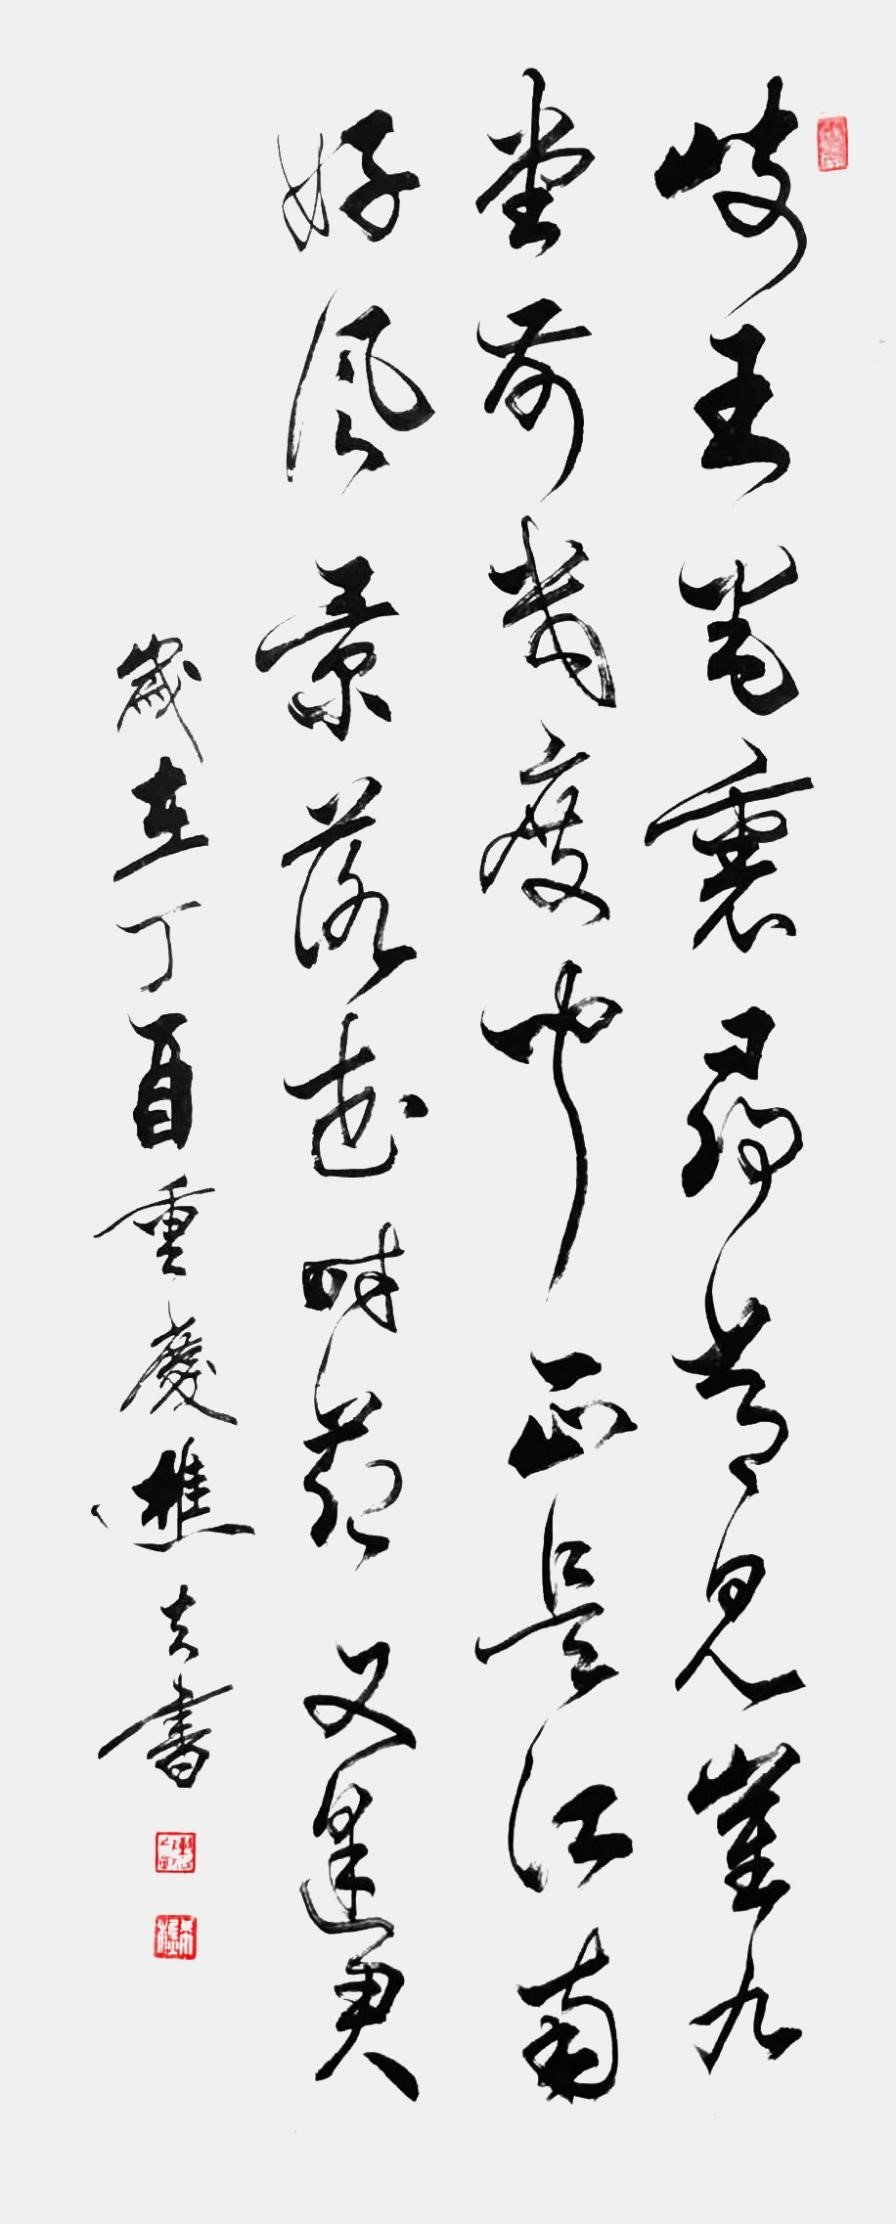 岐王宅裏尋常見崔九
堂前幾度聞正是江南
好風景落花時節又逢君
歲在丁酉重慶樵夫書